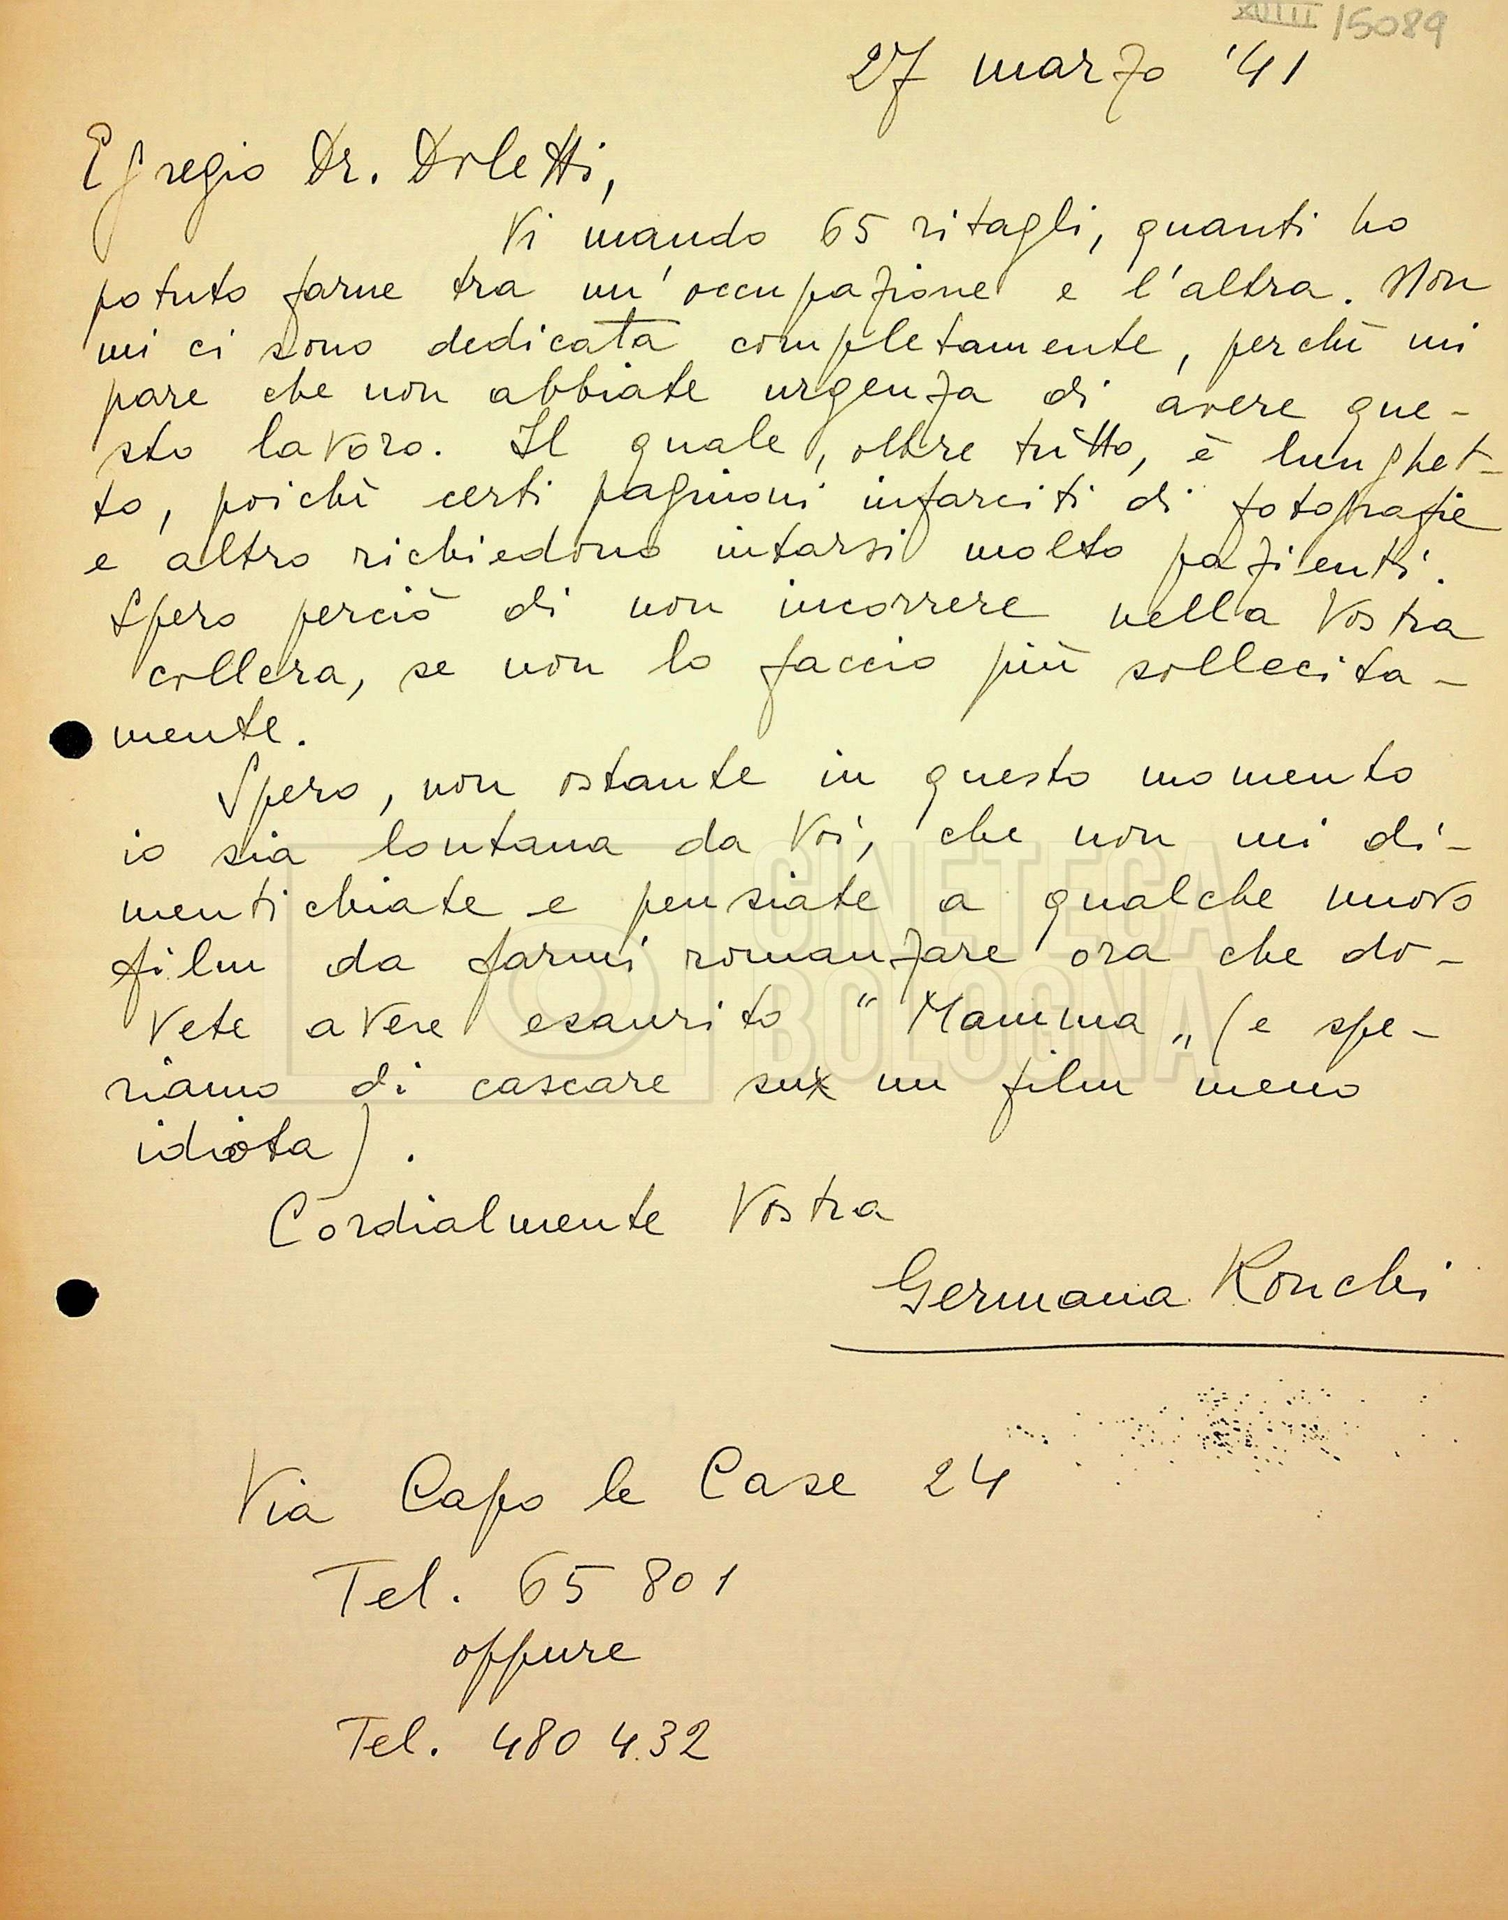 15089
27 marzo '41
Egregio Dr. Doletti,
Vi mando 65 ritagli, quanti ho
potuto farne tra un'occupazione e l'altra. Non
mi ci sono dedicata completamente, perchè mi
pare che non abbiate urgenza di avere que-
sto lavoro. Il quale, oltre tutto, è lunghet-
to, poichè certi paginoni infarciti di fotografie
e altro richiedono intarsi molto pazienti.
Spero perciò di non incorrere nella Vostra
collera, se non lo faccio più sollecita-
mente.
Spero, non ostante in questo momento
io sia lontana da Voi, che non mi di-
mentichiate e pensiate a qualche nuovo
film da farmi romanzare ora che do-
vete avere esaurito "Mamma" (e spe-
riamo di cascare su un film meno
idiota).
Cordialmente Vostra
Germana Ronchi
Via Capo le Case 24
Tel. 65 801
oppure
Tel. 480 432
CINETECA
BOLOGNA